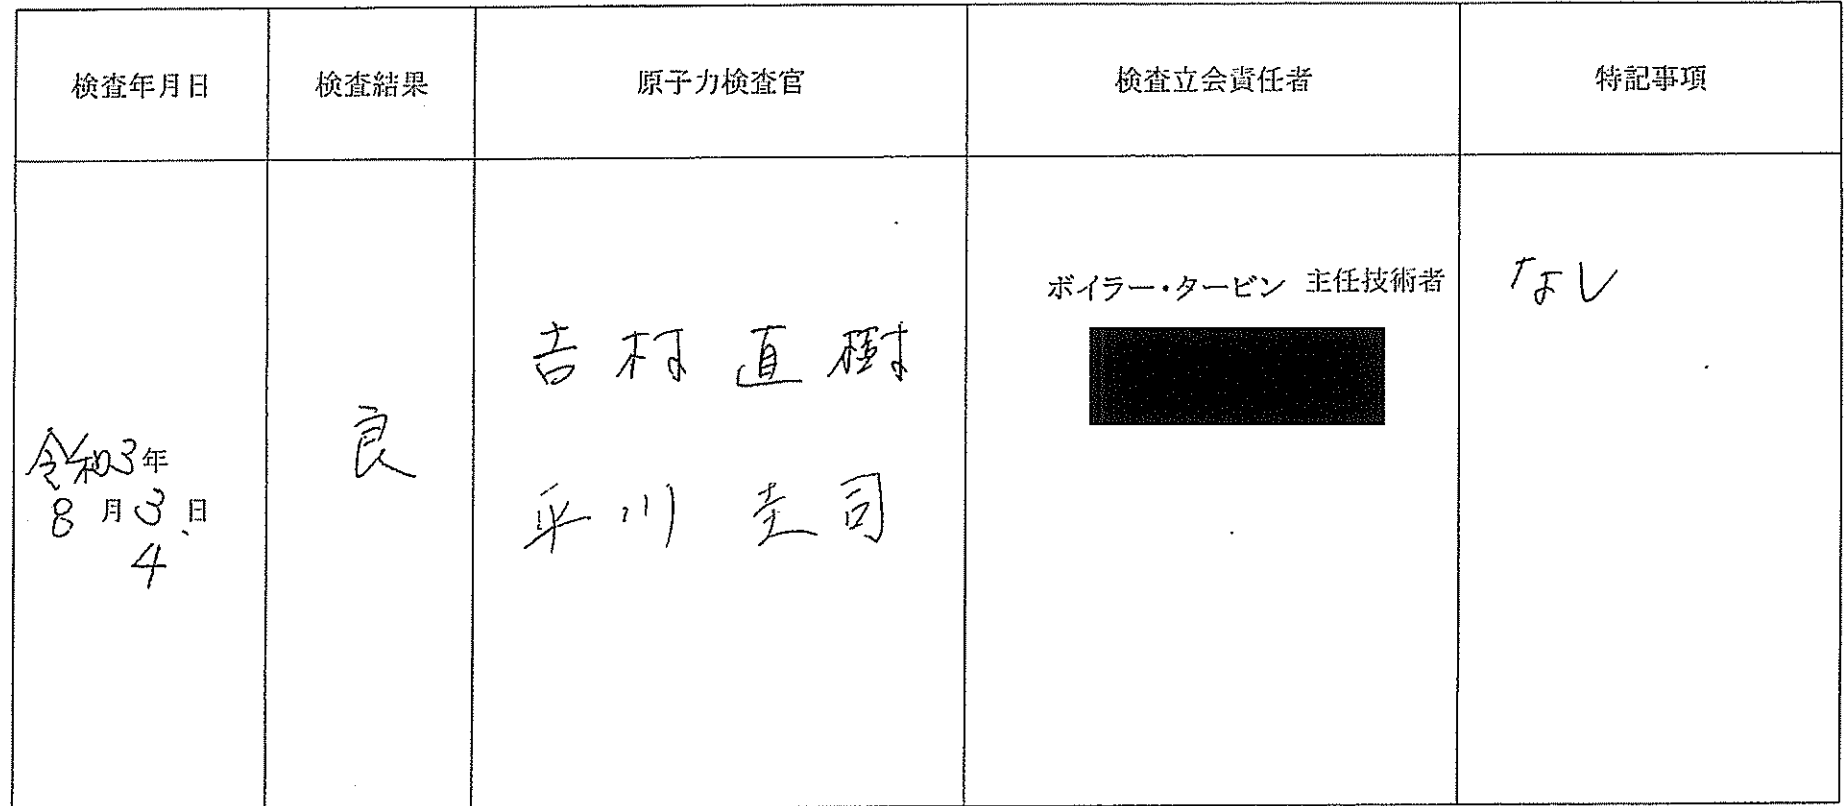 検査年月日 検査結果 原子力検査官 検査立会責任者 特記事項
令和3年
8月3、日
4
良
吉村直樹
平川圭司
ボイラー・タービン 主任技術者
なし